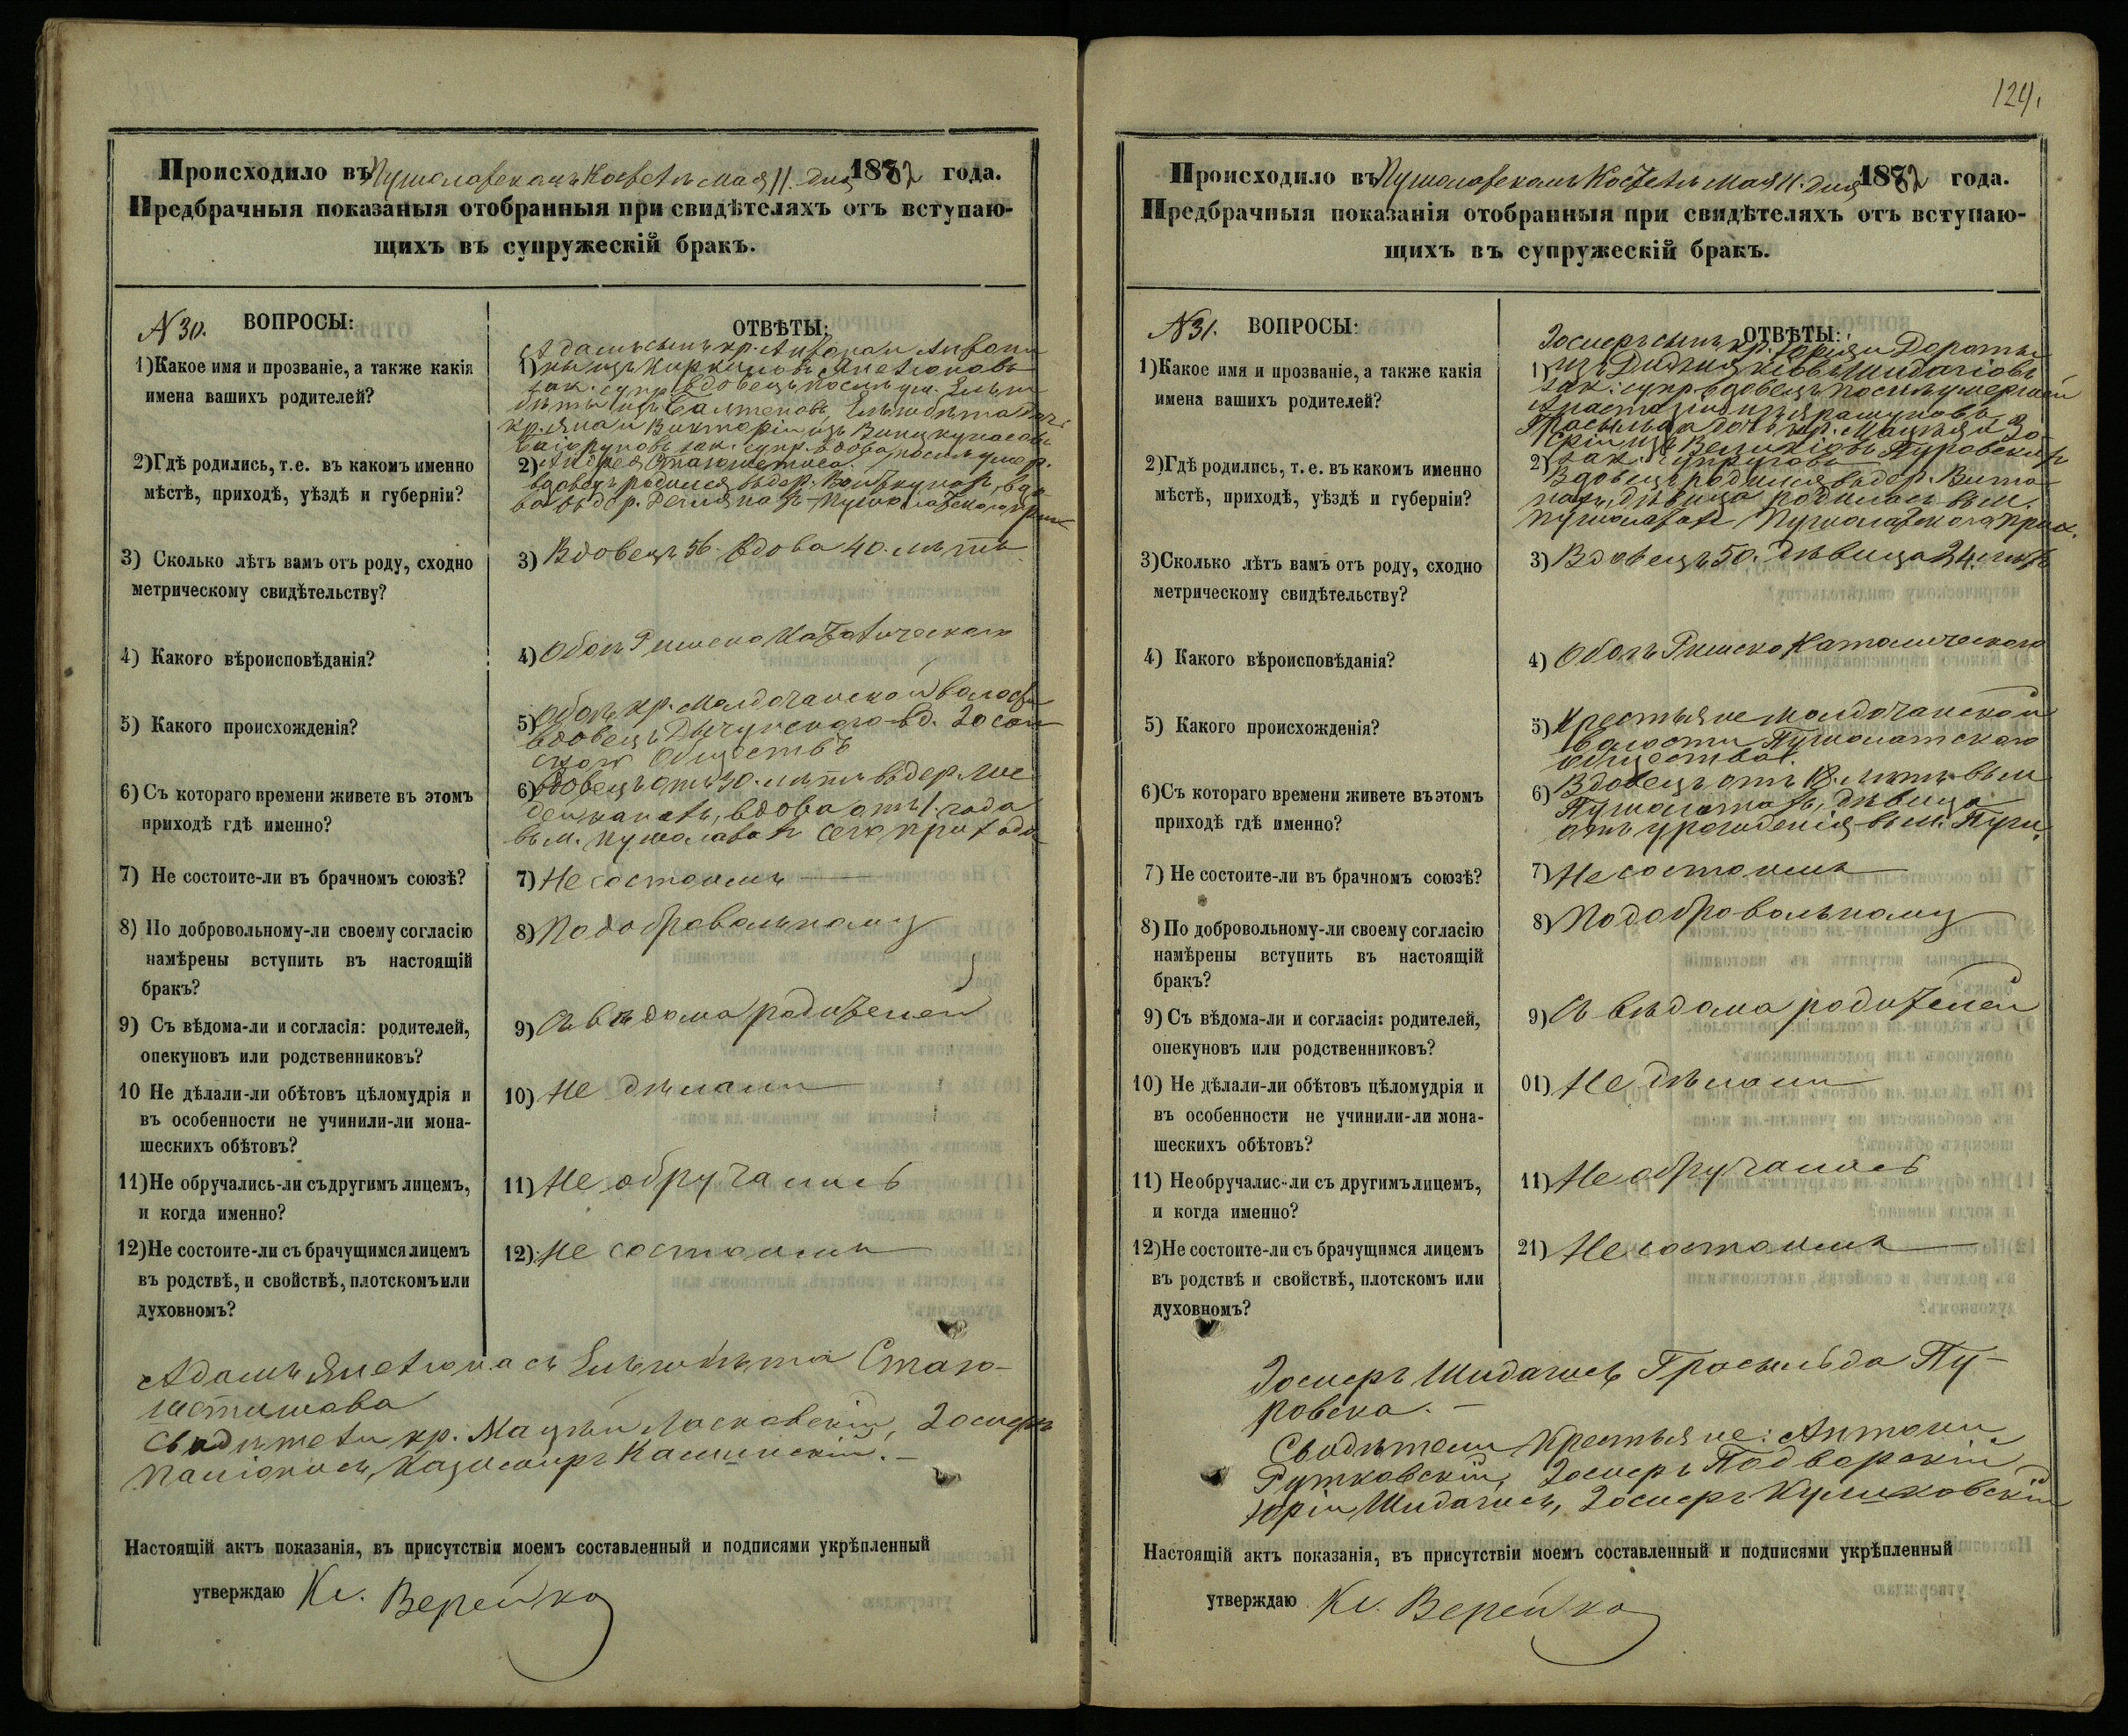 Происходило въ Пушолатскомъ Костелѣ мая 11. дня 1882 года.
Предбрачныя показаныя отобранныя при свидѣтеляхъ отъ вступаю-
щихъ въ супружескій бракъ.
N 30. ВОПРОСЫ:
ОТВѢТЫ:
1) Какое имя и прозваніе, а также какія
имена вашихъ родителей?
Адамъ сынъ кр. Антона и Антони
1)
зак. супр. вдовецъ послѣ ум.
кр. Яна и Викторіи изъ
зак. супр. вдова послѣ умер.
2) Гдѣ родились, т. е. въ какомъ именно
мѣстѣ, приходѣ, уѣздѣ и губерніи?
2) Андрея
вдовецъ родился въ дер. вдо-
ва въ дер. Пушолатскаго прих
3) Сколько лѣтъ вамъ отъ роду, сходно
метрическому свидѣтельству?
3) Вдовецъ 56. вдова 40. лѣтъ
4) Какого вѣроисповѣданія?
4) Обоихъ Римско Католическаго
5) Какого происхожденія?
Обоихъ кр. волости
5) вдовецъ вд.
Обществъ
6) Съ котораго времени живете въ этомъ
приходѣ гдѣ именно?
6) Вдовецъ отъ 30. лѣтъ въ дер.
вдова отъ 1. года
въ м. Пушолатахъ сего прихода
7) Не состоите-ли въ брачномъ союзѣ?
7) Не состоимъ
8) По добровольному-ли своему согласію
намѣрены вступить въ настоящій
бракъ?
8) По добровольному
9) Съ вѣдома-ли и согласія: родителей,
опекуновъ или родственниковъ?
9) Съ вѣдома родителей
10 Не дѣлали-ли обѣтовъ цѣломудрія и
въ особенности не учинили-ли мона-
шескихъ обѣтовъ?
10) Не дѣлали
11) Не обручались-ли съ другимъ лицемъ,
и когда именно?
11) Не обручались
12) Не состоите-ли съ брачущимся лицемъ
въ родствѣ, и свойствѣ, плотскомъ или
духовномъ?
12) Не состоимъ
Адамъ Эльжбѣта
Свидѣтели кр. Мацѣй Ласковскій, Іосифъ
Казимиръ Каминскій. –
Настоящій актъ показанія, въ присутствіи моемъ составленный и подписями укрѣпленный
утверждаю Кс. Верейко
124.
Происходило въ Пушолатскомъ Костелѣ мая 11. дня 1882 года.
Предбрачныя показанія отобранныя при свидѣтеляхъ отъ вступаю-
щихъ въ супружескій бракъ.
N 31. ВОПРОСЫ:
ОТВѢТЫ:
1) Какое имя и прозваніе, а также какія
имена вашихъ родителей?
Іосифъ сынъ кр. и Дороты
1) изъ
зак: супр. вдовецъ послѣ умершей
Анастазіи изъ а
дочь кр. Мацѣя и
изъ Пуровскихъ
2) Гдѣ родились, т. е. въ какомъ именно
мѣстѣ, приходѣ, уѣздѣ и губерніи?
2) зак. супруговъ
Вдовецъ родился въ дер.
дѣвица родилась въ м.
Пушолатахъ Пушолатскаго прих.
3) Сколько лѣтъ вамъ отъ роду, сходно
метрическому свидѣтельству?
3) Вдовецъ 50. дѣвица 24. лѣтъ
4) Какого вѣроисповѣданія?
4) Обоихъ Римско Католическаго
5) Какого происхожденія?
5) Крестьяне
волости Пушолатскаго
общества.
6) Съ котораго времени живете въ этомъ
приходѣ гдѣ именно?
6) Вдовецъ отъ 18. лѣтъ въ м.
Пушолатахъ, дѣвица
отъ урожденія въ м. Пуш.
7) Не состоите-ли въ брачномъ союзѣ?
7) Не состоимъ
8) По добровольному-ли своему согласію
намѣрены вступить въ настоящій
бракъ?
8) По добровольному
9) Съ вѣдома-ли и согласія: родителей,
опекуновъ или родственниковъ?
9) Съ вѣдома родителей
10) Не дѣлали-ли обѣтовъ цѣломудрія и
въ особенности не учинили-ли мона-
шескихъ обѣтовъ?
01) Не дѣлали
11) Не обручалис-ли съ другимъ лицемъ,
и когда именно?
11) Не обручались
12) Не состоите-ли съ брачущимся лицемъ
въ родствѣ и свойствѣ, плотскомъ или
духовномъ?
21) Не состоимъ
Іосифъ Шидагисъ Пу-
ровска. –
Свидѣтели Крестьяне: Антони
Рутковскій, Іосифъ Подворскій
Юрій Шидагисъ, Іосифъ Куликовскій
Настоящій актъ показанія, въ присутствіи моемъ составленный и подписями укрѣпленный
утверждаю Кс. Верейко